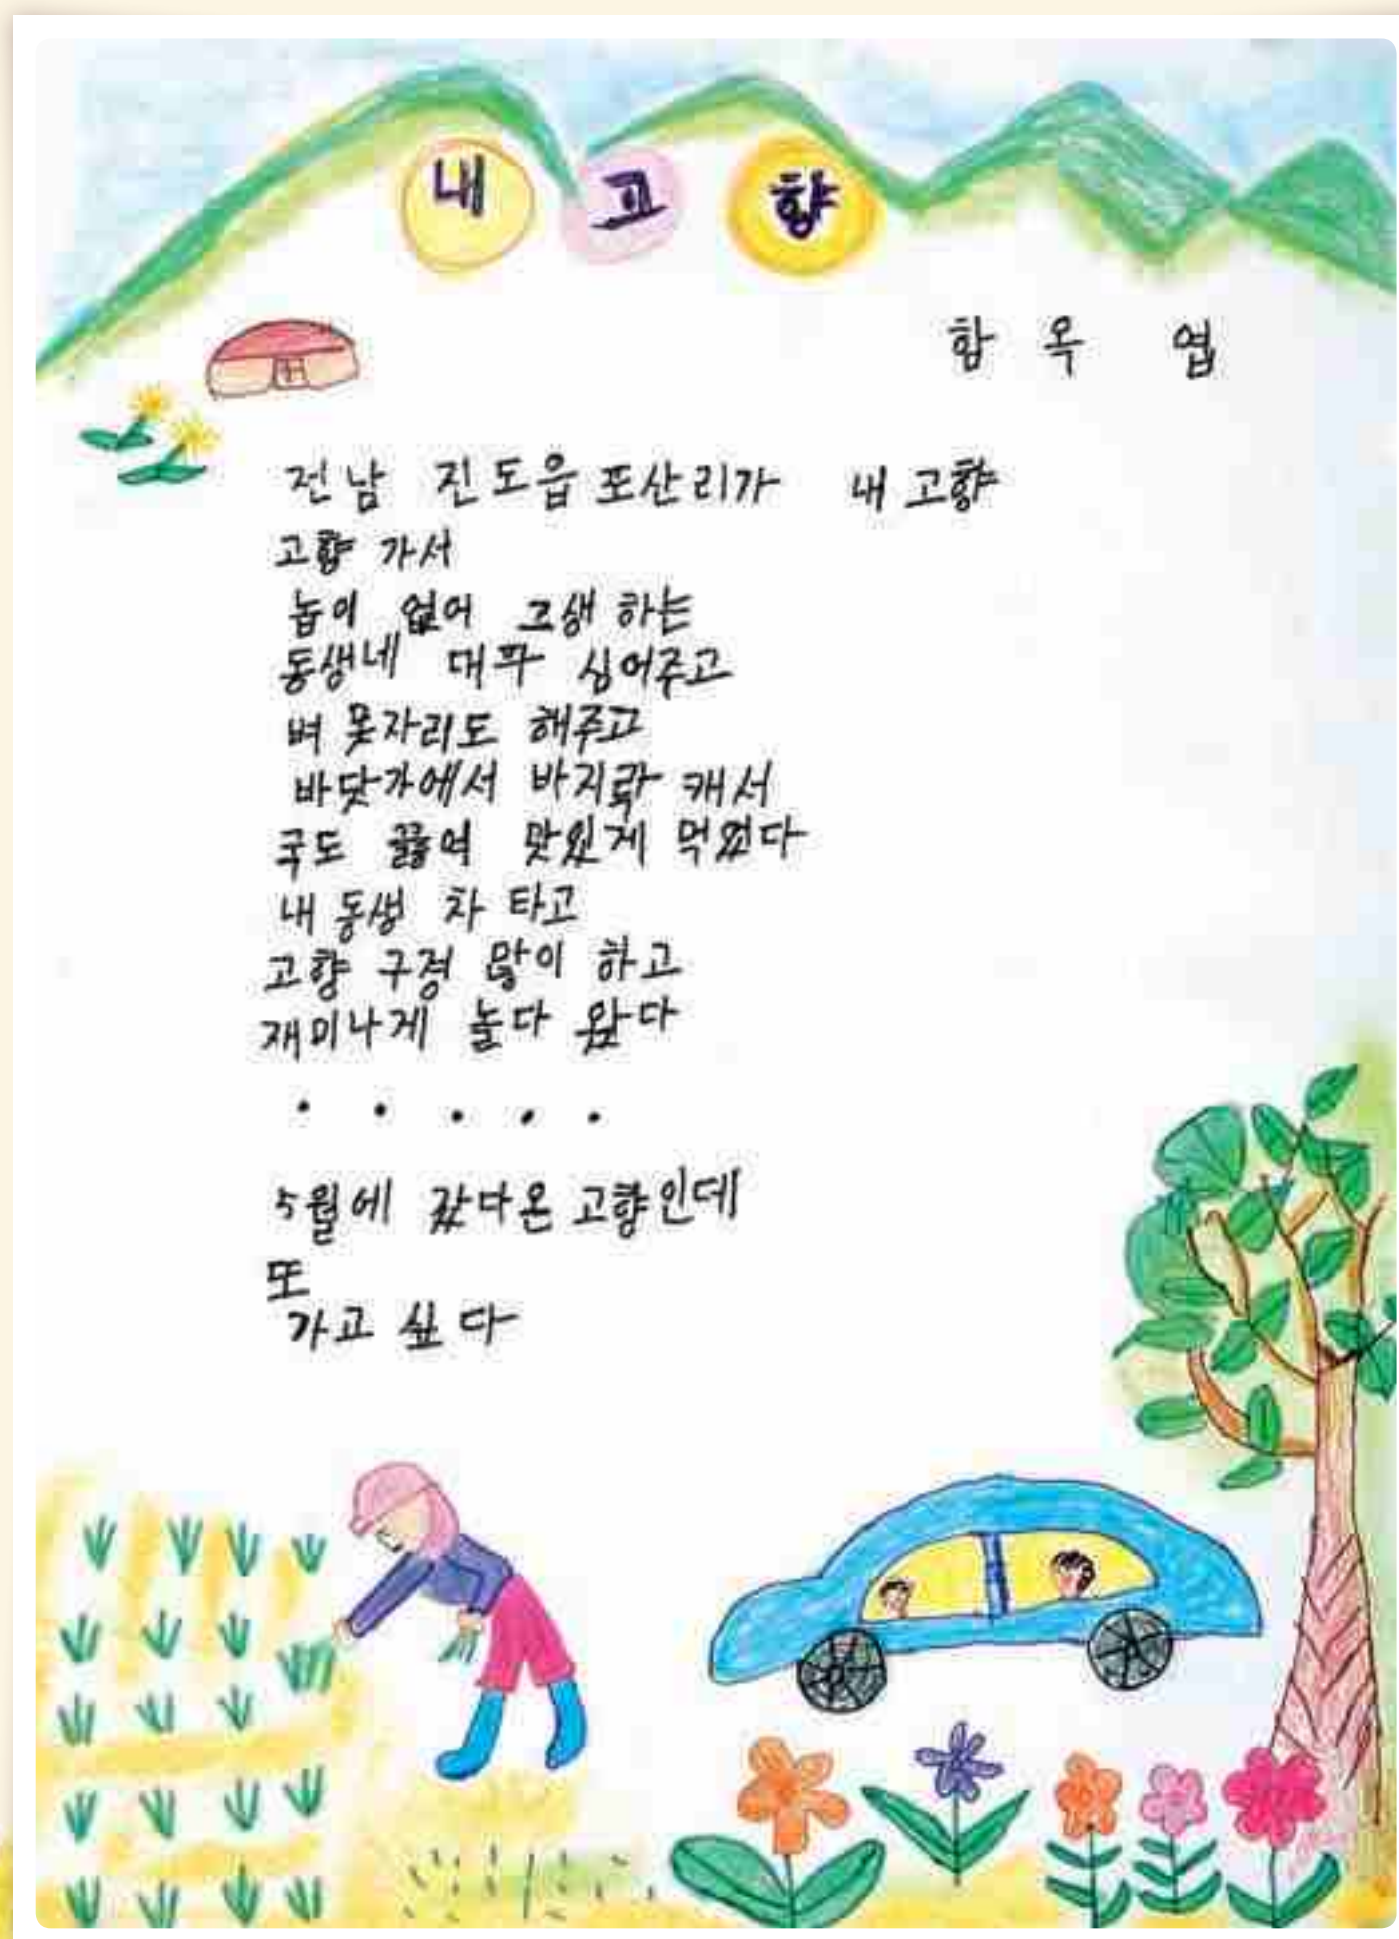 내 고 향
함 옥 엽
전남 진도읍 포산리가 내 고향
고향 가서
놉이 없어 고생 하는
동생네 대파 심어주고
벼 못자리도 해주고
바닷가에서 바지락 캐서
국도 끓여 맛있게 먹었다
내 동생 차 타고
고향 구경 많이 하고
재미나게 놀다 왔다
· · · · ·
5월에 갔다온 고향인데
또
가고 싶다